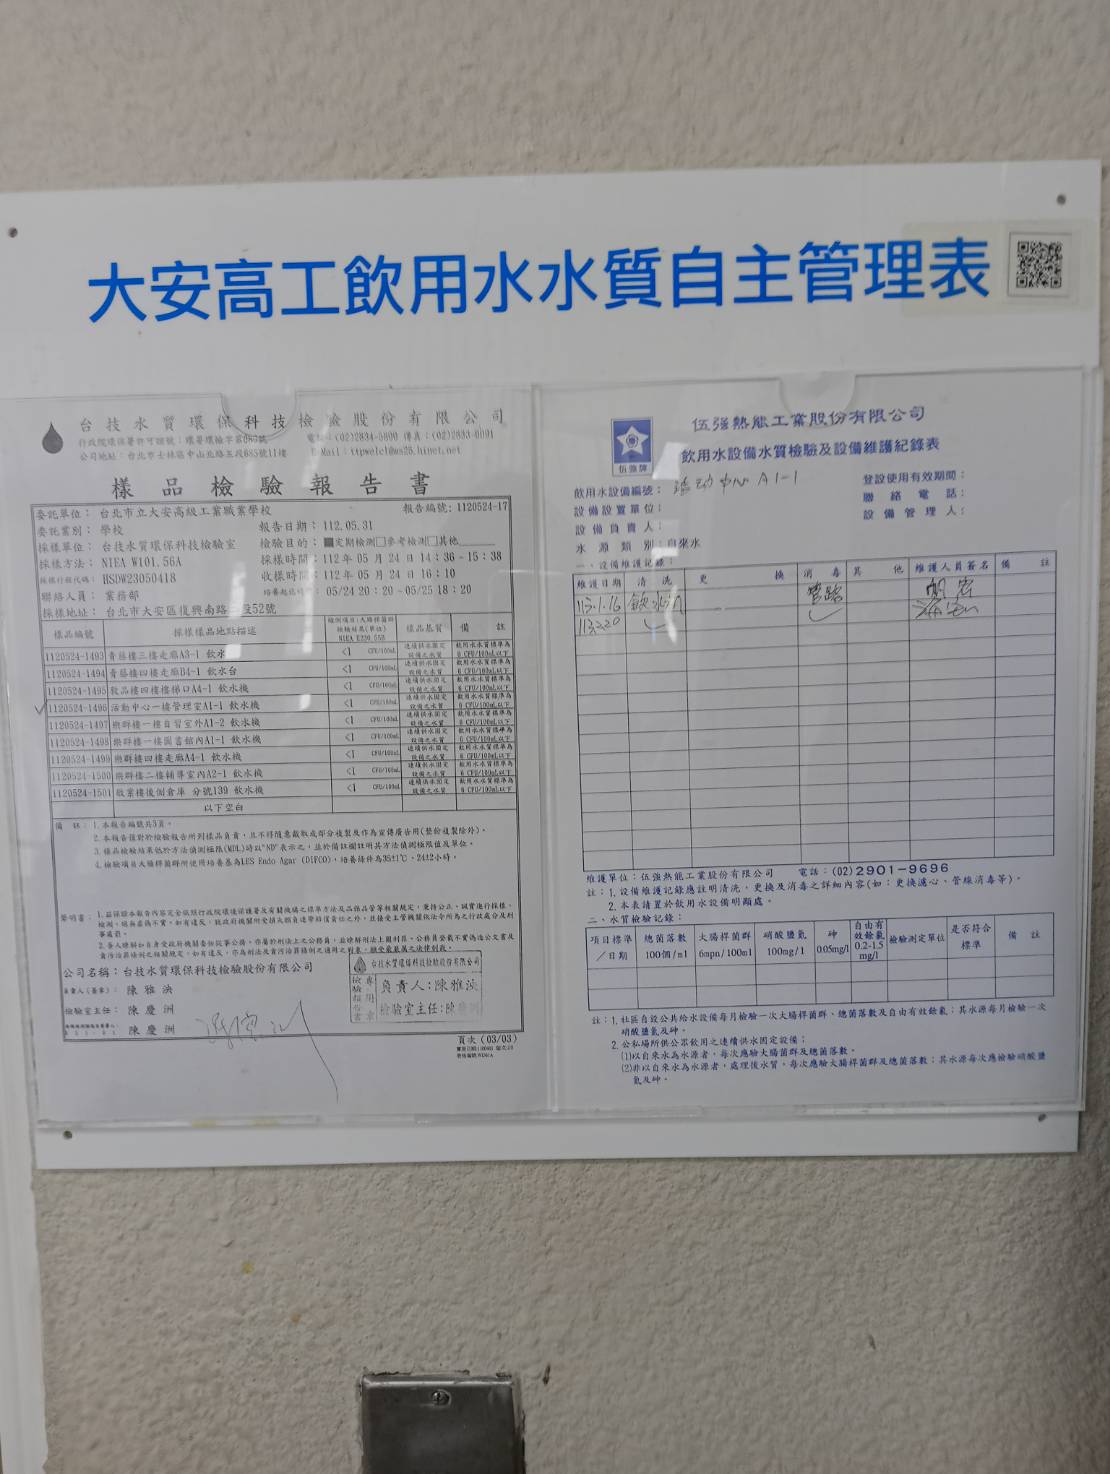 大安高工飲用水水質自主管理表
台技水質環保科技檢驗股份有限公司
行政院環保署許可證號：環署環檢字第080號 電話：(02)2834-5800 傳真：(02)2833-6091
公司地址：台北市士林區中山北路五段685號11樓
樣品檢驗報告書
委託單位： 台北市立大安高級工業職業學校 報告編號：1120524-17
委託業別： 學校 報告日期：112.05.31
採樣單位： 台技水質環保科技檢驗室 檢驗目的：■定期檢測□參考檢測□其他
採樣方法： NIEA W101.56A 採樣時間：112年05月24日14:36~15:38
採樣行程代碼： HSDW23050418 收樣時間：112年05月24日16:10
聯絡人員： 業務部 培養起迄時間：05/24 20:20~05/25 18:20
採樣地址： 台北市大安區復興南路二段52號
樣品編號 採樣樣品地點描述 樣品基質 備 註
NIEA E230.55B
1120524-1493 青藤樓三樓走廊A3-1 飲水 <1 CFU/100mL 連續供水固定設備之水質 飲用水水質標準為6 CFU/100mL以下
1120524-1494 青藤樓四樓走廊B4-1 飲水台 <1 CFU/100mL 連續供水固定設備之水質 飲用水水質標準為6 CFU/100mL以下
1120524-1495 敦品樓四樓樓梯口A4-1 飲水機 <1 CFU/100mL 連續供水固定設備之水質 飲用水水質標準為6 CFU/100mL以下
1120524-1496 活動中心一樓管理室A1-1 飲水機 <1 CFU/100mL 連續供水固定設備之水質 飲用水水質標準為6 CFU/100mL以下
1120524-1497 樂群樓一樓自習室外A1-2 飲水機 <1 CFU/100mL 連續供水固定設備之水質 飲用水水質標準為6 CFU/100mL以下
1120524-1498 樂群樓一樓圖書館內A1-1 飲水機 <1 CFU/100mL 連續供水固定設備之水質 飲用水水質標準為6 CFU/100mL以下
1120524-1499 樂群樓四樓走廊A4-1 飲水機 <1 CFU/100mL 連續供水固定設備之水質 飲用水水質標準為6 CFU/100mL以下
1120524-1500 樂群樓二樓輔導室內A2-1 飲水機 <1 CFU/100mL 連續供水固定設備之水質 飲用水水質標準為6 CFU/100mL以下
1120524-1501 敬業樓後側倉庫 分號139 飲水機 <1 CFU/100mL 連續供水固定設備之水質 飲用水水質標準為6 CFU/100mL以下
以下空白
備 註：1.本報告編號共3頁。
2.本報告僅對於檢驗報告所列樣品負責，且不得隨意截取或部分複製及作為宣傳廣告用(整份複製除外)。
3.樣品檢驗結果低於方法偵測極限(MDL)時以"ND"表示之，並於備註欄註明其方法偵測極限值及單位。
4.檢驗項目大腸桿菌群所使用培養基為LES Endo Agar (DIFCO)，培養條件為35±1℃、24±2小時。
公司名稱：台技水質環保科技檢驗股份有限公司
負責人(簽章)： 陳雅泱
檢驗室主任： 陳慶洲
陳慶洲
台技水質環保科技檢驗股份有限公司
檢驗報告書專用章
負責人：陳雅泱
檢驗室主任：陳慶洲
頁次 (03/03)
伍強牌
伍強熱能工業股份有限公司
飲用水設備水質檢驗及設備維護紀錄表
飲用水設備編號：活動中心 A1-1 登設使用有效期間：
設備設置單位： 聯絡電話：
設備負責人： 設備管理人：
水源類別：自來水
一、設備維護記錄：
維護日期 清洗 更換 消毒 其他 維護人員簽名 備註
113.1.16 飲水機 管路
113.2.20
維護單位：伍強熱能工業股份有限公司 電話：(02)2901-9696
註：1.設備維護記錄應註明清洗，更換及消毒之詳細內容(如：更換濾心、管線消毒等)。
2.本表請置於飲用水設備明顯處。
二、水質檢驗記錄：
項目標準／日期 總菌落數 100個/ml 大腸桿菌群 6mpn/100ml 硝酸鹽氮 100mg/l 砷 0.05mg/l 自由有效餘氯 0.2-1.5 mg/l 檢驗測定單位 是否符合標準 備註
註：1.社區自設公共給水設備每月檢驗一次大腸桿菌群、總菌落數及自由有效餘氯；其水源每月檢驗一次
硝酸鹽氮及砷。
2.公私場所供公眾飲用之連續供水固定設備：
(1)以自來水為水源者，每次應驗大腸菌群及總菌落數。
(2)非以自來水為水源者，處理後水質，每次應驗大腸桿菌群及總菌落數；其水源每次應檢驗硝酸鹽
氮及砷。